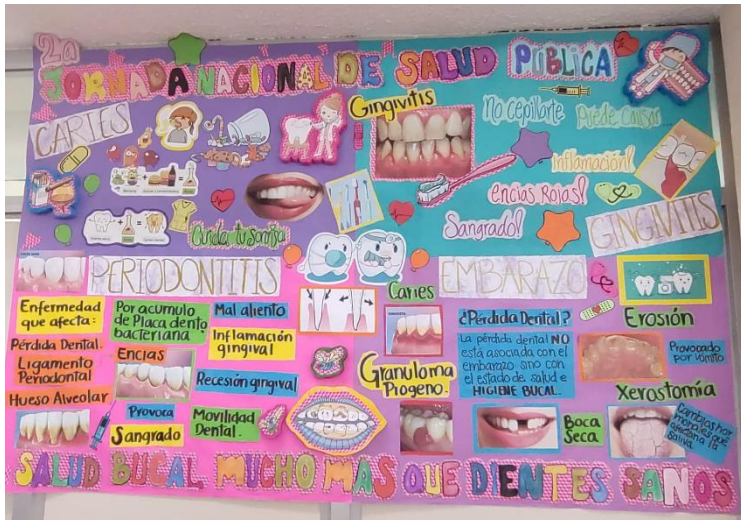 2a
JORNADA NACIONAL DE SALUD PÚBLICA
CARIES
Cuida tu sonrisa
Gingivitis
No cepillarte Puede Causar
Inflamación!
encias Rojas!
Sangrado!
GINGIVITIS
PERIODONTITIS
Enfermedad
que afecta:
Pérdida Dental.
Ligamento
Periodontal
Hueso Alveolar
Por acumulo
de Placa dento
bacteriana
Encias
Provoca
Sangrado
Mal aliento
Inflamación
gingival
Recesión gingival
Movilidad
Dental.
EMBARAZO
Caries
Granuloma
Piogeno.
¿Pérdida Dental?
La pérdida dental NO
está asociada con el
embarazo sino con
el estado de salud e
HIGIENE BUCAL.
Erosión
Provocado
por vómito
Xerostomía
Boca
Seca
Cambios hor
monales que
afectan a la
saliva
SALUD BUCAL MUCHO MAS QUE DIENTES SANOS